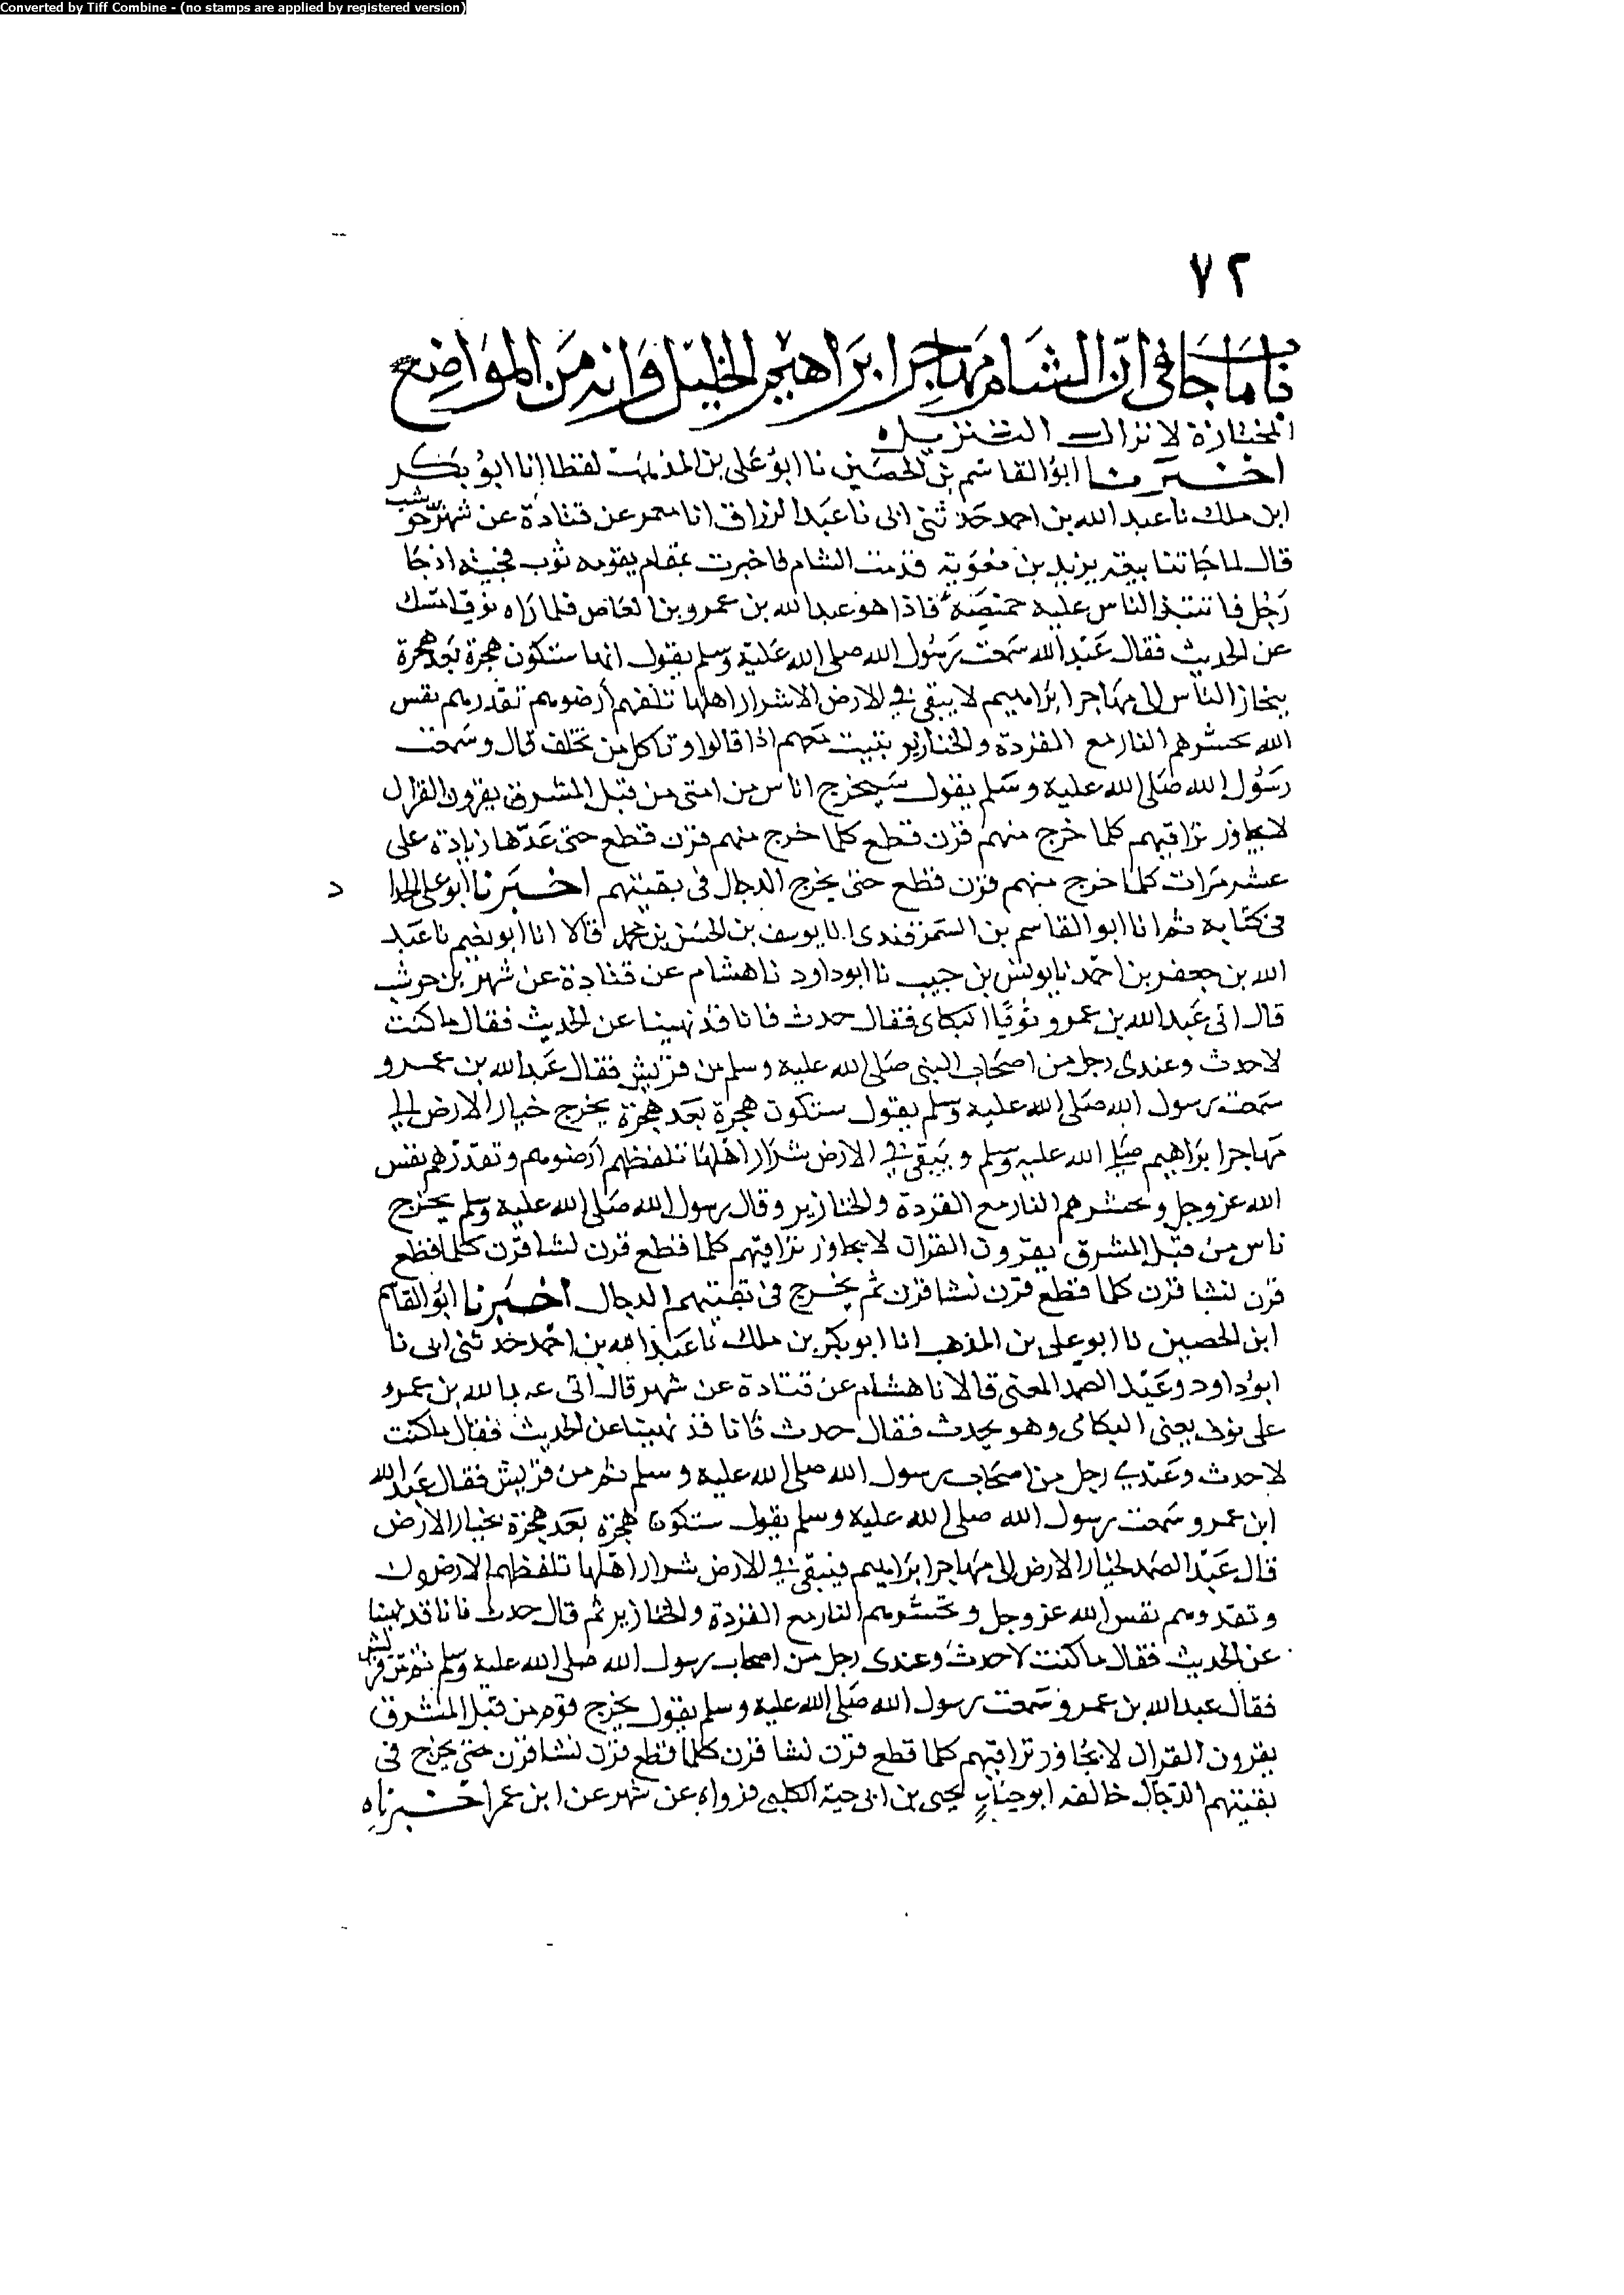 Converted by Tiff Combine - (no stamps are applied by registered version)
٧٢
باب ما جا في ان الشام مهاجر ابراهيم الخليل وانه من المواضع
المختارة لانزال التنزيل
اخبرنا ابو القاسم بن الحصين نا ابو علي بن المذهب لفظا انا ابو بكر
ابن ملك نا عبد الله بن احمد حدثني ابي نا عبد الرزاق انا معمر عن قتادة عن شهر بن حوشب
قال لما جاتنا بيعة يزيد بن معوية قدمت الشام فاخبرت بمقام يقومه نوف فجئته اذ جا
رجل فانتبذ الناس عليه خميصة فاذا هو عبد الله بن عمرو بن العاص فلما راه نوف امسك
عن الحديث فقال عبد الله سمعت رسول الله صلى الله عليه وسلم يقول انها ستكون هجرة بعد هجرة
ينحاز الناس الى مهاجر ابراهيم لا يبقى في الارض الا شرار اهلها تلفظهم ارضوهم تقذرهم نفس
الله تحشرهم النار مع القردة والخنازير تبيت معهم اذا قالوا وتاكل من تخلف قال وسمعت
رسول الله صلى الله عليه وسلم يقول سيخرج اناس من امتي من قبل المشرق يقرون القران
لا يجاوز تراقيهم كلما خرج منهم قرن قطع كلما خرج منهم قرن قطع حتى عدها زيادة على
عشر مرات كلما خرج منهم قرن قطع حتى يخرج الدجال في بقيتهم اخبرنا ابو علي الحداد
في كتابه ثم انا ابو القاسم بن السمرقندي انا يوسف بن الحسن بن محمد قالا انا ابو نعيم نا عبد
الله بن جعفر بن احمد نا يونس بن حبيب نا ابو داود نا هشام عن قتادة عن شهر بن حوشب
قال اتى عبد الله بن عمرو نوفا البكاي فقال حدث فانا قد نهينا عن الحديث فقال ما كنت
لاحدث وعندي رجل من اصحاب النبي صلى الله عليه وسلم من قريش فقال عبد الله بن عمرو
سمعت رسول الله صلى الله عليه وسلم يقول ستكون هجرة بعد هجرة يخرج خيار الارض الى
مهاجر ابراهيم صلى الله عليه وسلم ويبقى في الارض شرار اهلها تلفظهم ارضوهم وتقذرهم نفس
الله عز وجل وتحشرهم النار مع القردة والخنازير وقال رسول الله صلى الله عليه وسلم يخرج
ناس من قبل المشرق يقرون القران لا يجاوز تراقيهم كلما قطع قرن نشا قرن كلما قطع
قرن نشا قرن كلما قطع قرن نشا قرن ثم يخرج في بقيتهم الدجال اخبرنا ابو القاسم
ابن الحصين نا ابو علي بن المذهب انا ابو بكر بن ملك نا عبد الله بن احمد حدثني ابي نا
ابو داود وعبد الصمد المعنى قالا نا هشام عن قتادة عن شهر قال اتى عبد الله بن عمرو
على نوف يعني البكالي وهو يحدث فقال حدث فانا قد نهينا عن الحديث فقال ما كنت
لاحدث وعندي رجل من اصحاب رسول الله صلى الله عليه وسلم ثم من قريش فقال عبد الله
ابن عمرو سمعت رسول الله صلى الله عليه وسلم يقول ستكون هجرة بعد هجرة بخيار الارض
قال عبد الصمد لخيار الارض الى مهاجر ابراهيم فيبقى في الارض شرار اهلها تلفظهم الارضون
وتقذرهم نفس الله عز وجل وتحشرهم النار مع القردة والخنازير ثم قال حدث فانا قد نهينا
عن الحديث فقال ما كنت لاحدث وعندي رجل من اصحاب رسول الله صلى الله عليه وسلم ثم من قريش
فقال عبد الله بن عمرو سمعت رسول الله صلى الله عليه وسلم يقول يخرج قوم من قبل المشرق
يقرون القران لا يجاوز تراقيهم كلما قطع قرن نشا قرن كلما قطع قرن نشا قرن حتى يخرج في
بقيتهم الدجال خالفه ابو جناب يحيى بن ابي حية الكلبي فرواه عن شهر عن ابن عمر اخبرناه